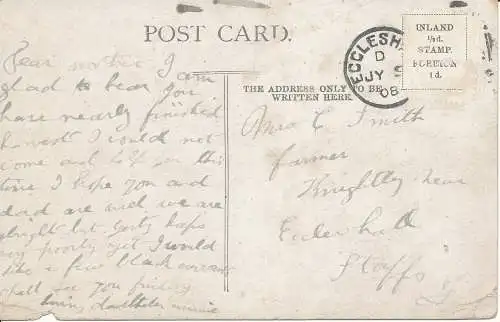 POST CARD.
Dear mother I am
glad to hear you
have nearly finished
harvest I could not
come and help you this
time I hope you and
dad are well we are
alright but
very poorly yet I would
like a few black currans
shall see you friday
loving daughter minnie
THE ADDRESS ONLY TO BE
WRITTEN HERE.
ECCLESHA
D
JY 5
08
INLAND
½d.
STAMP.
FOREIGN
1d.
Mrs C Smith
farmer
Knightly near
Eccleshall
Staffs